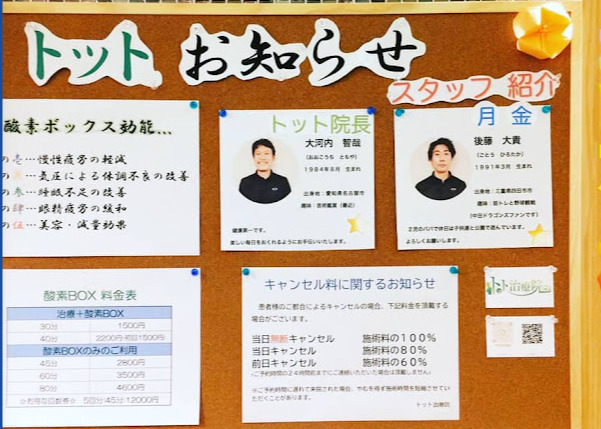 トット お知らせ
スタッフ紹介
酸素ボックス効能...
の壱…慢性疲労の軽減
の…気圧による体調不良の改善
の参…睡眠不足の改善
の肆…眼精疲労の緩和
の伍…美容・減量効果
トット院長
大河内 智哉
(おおこうち ともや)
1984年8月 生まれ
出身地:愛知県名古屋市
趣味:芸術鑑賞(最近)
健康第一です。
楽しい毎日をおくれるようにお手伝いいたします。
月 金
後藤 大貴
(ごとう ひろたか)
1991年3月 生まれ
出身地:三重県四日市市
趣味:筋トレと野球観戦
(中日ドラゴンズファンです)
2児のパパで休日は子供達と公園で遊んでいます。
よろしくお願いします。
酸素BOX 料金表
治療+酸素BOX
30分 1500円
40分 2200円・初回1500円
酸素BOXのみのご利用
45分 2800円
60分 3500円
80分 4600円
☆お得な回数券☆ 5回分:45分:12000円
キャンセル料に関するお知らせ
患者様のご都合によるキャンセルの場合、下記料金を頂戴する
場合がございます。
当日無断キャンセル 施術料の100%
当日キャンセル 施術料の80%
前日キャンセル 施術料の60%
(ご予約時間の24時間前までにご連絡いただいた場合は頂戴しません)
※ご予約時間に遅れて来院された場合、やむを得ず施術時間を短縮させてい
ただくことがあります。
トット治療院
トット治療院